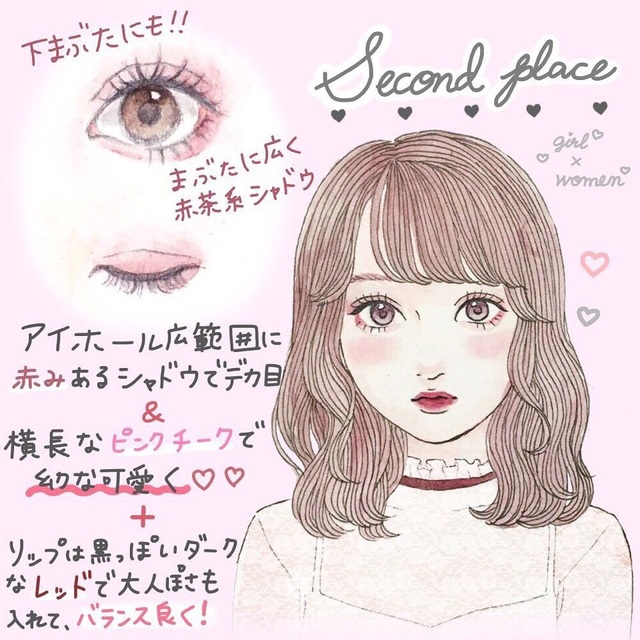 下まぶたにも!!
Second place
girl
×
women
まぶたに広く
赤茶系シャドウ
アイホール広範囲に
赤みあるシャドウでデカ目
&
横長なピンクチークで
幼な可愛く♡♡
+
リップは黒っぽいダーク
なレッドで大人ぽさも
入れて、バランス良く!